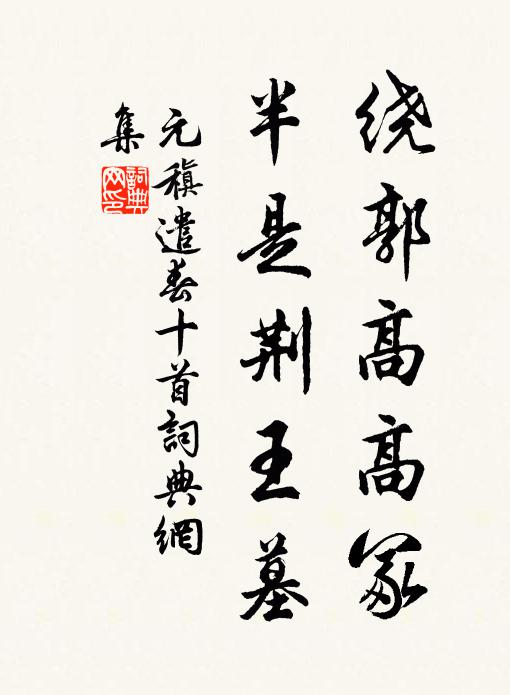 绕郭高高冢
半是荆王墓
元稹遣春十首詞典網
集
詞典网印